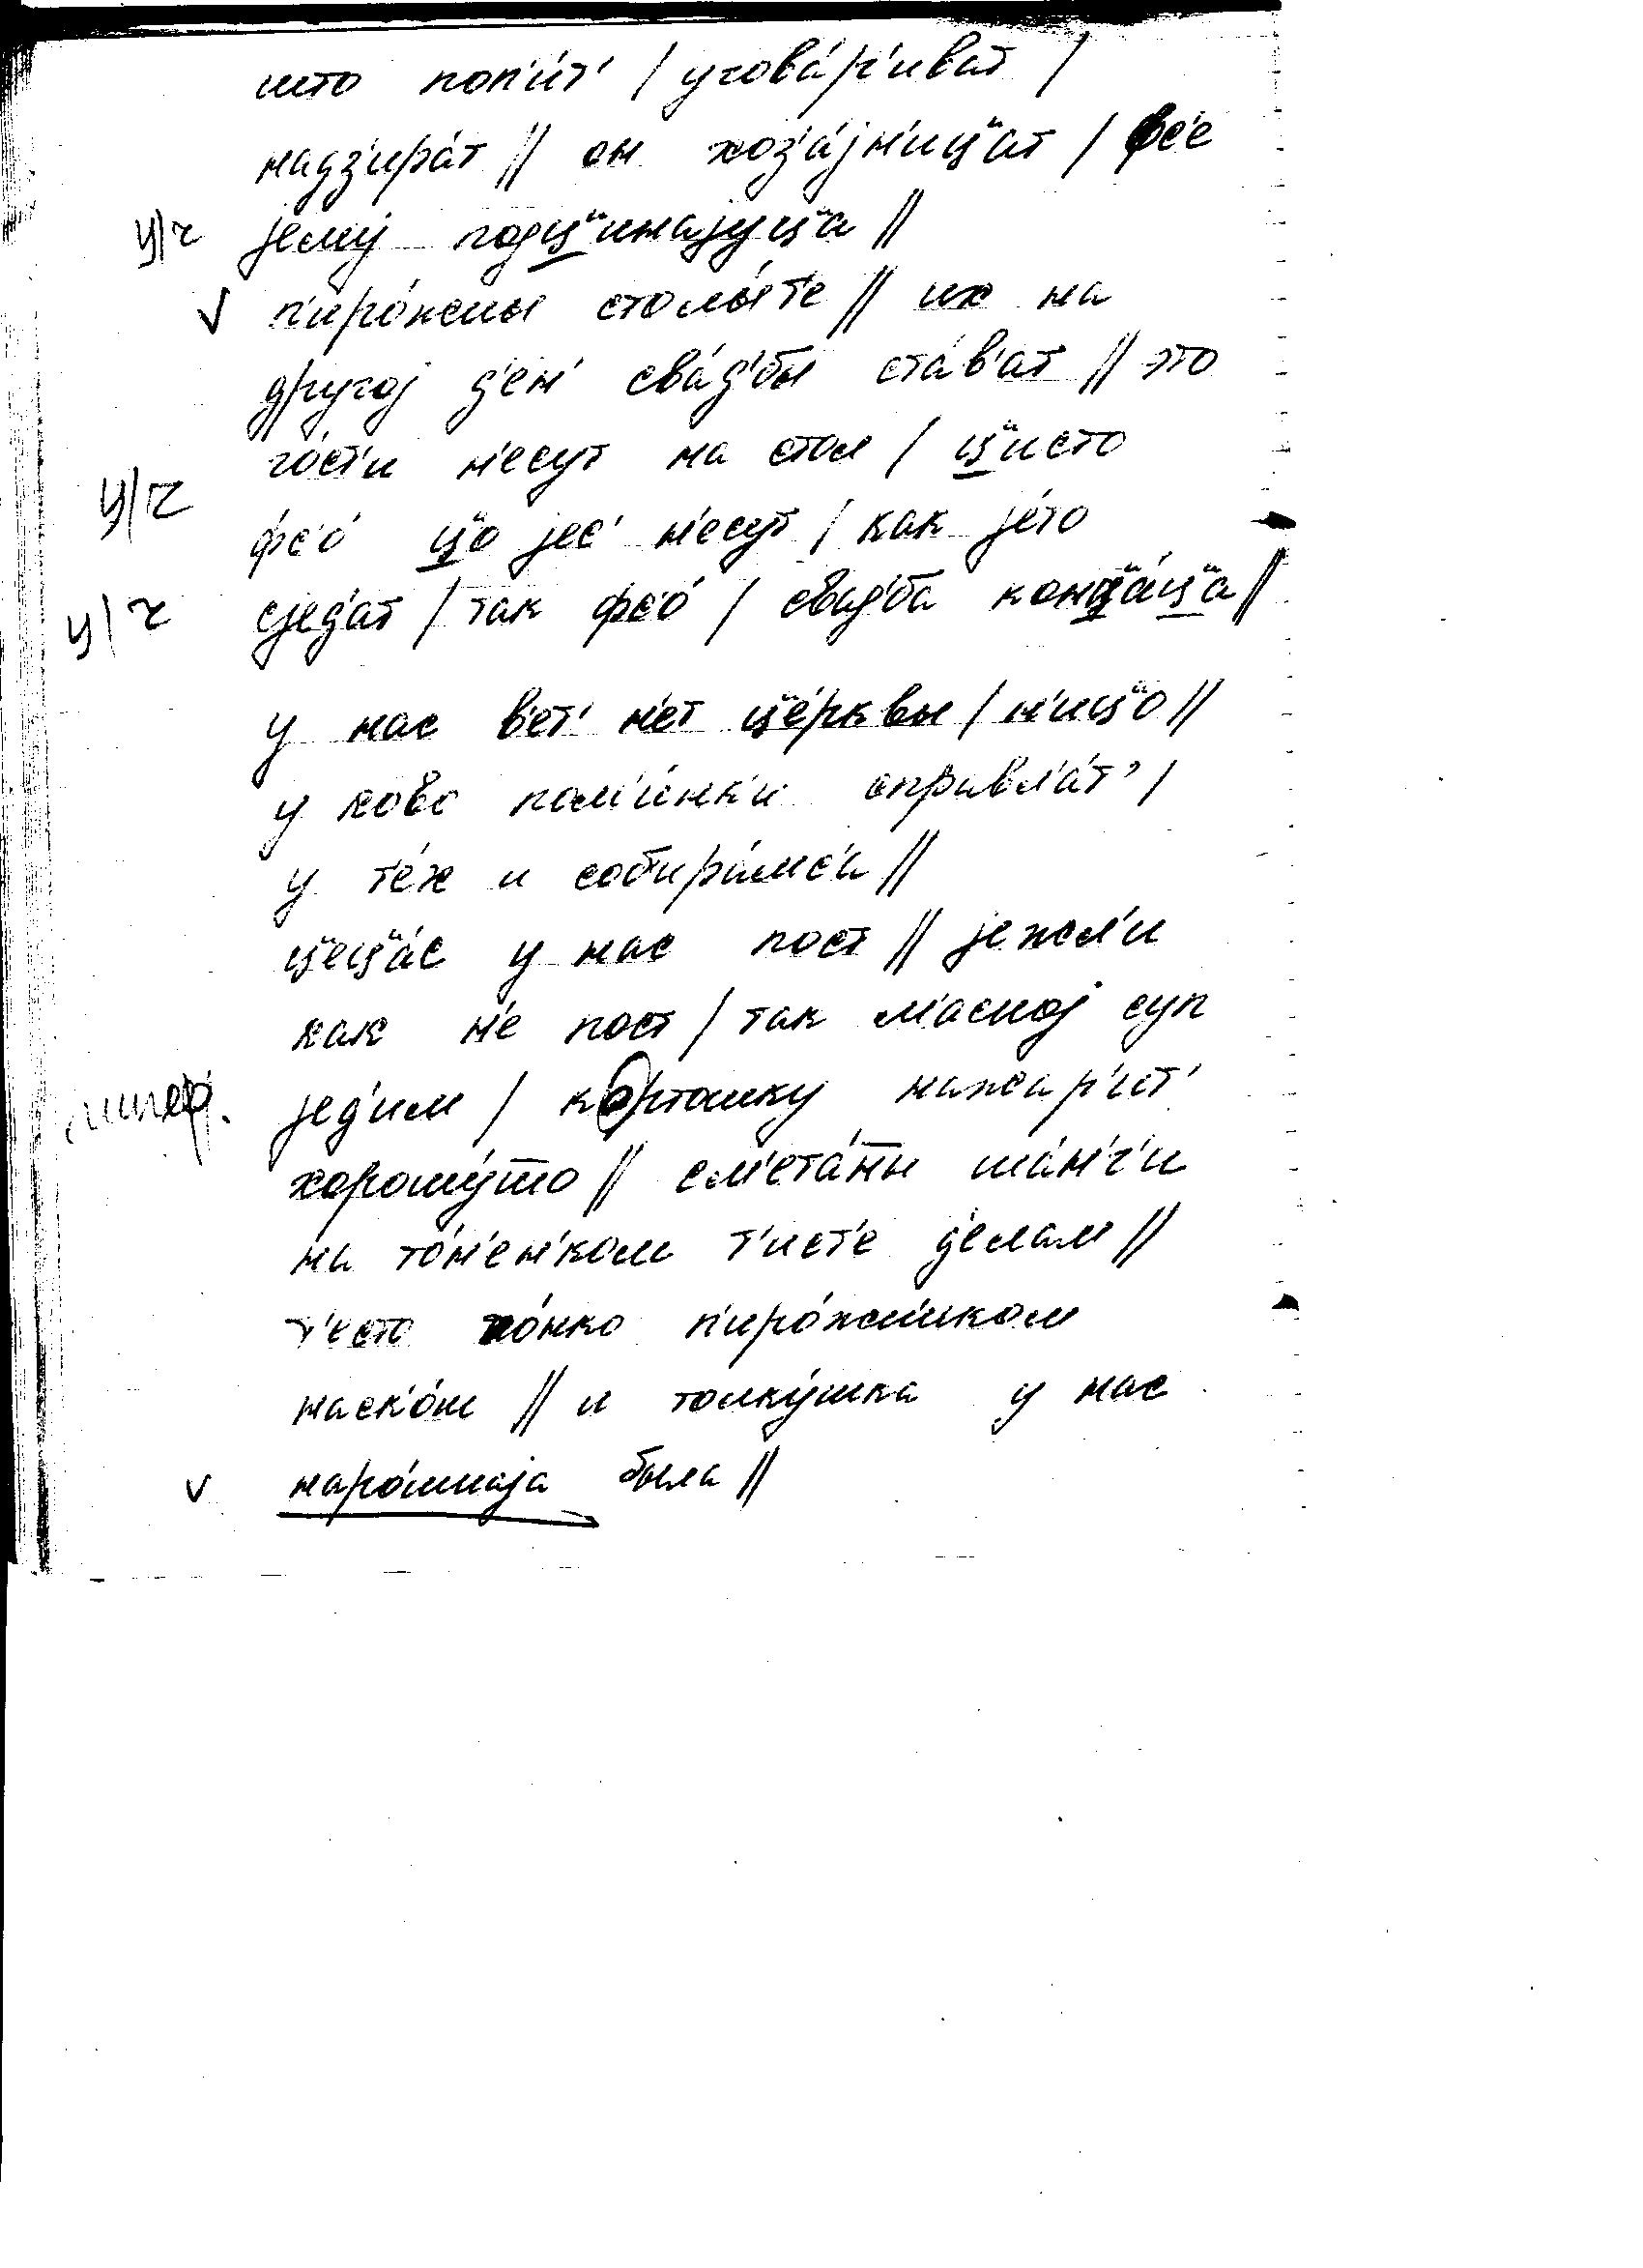 што поп'и́т' / угова́р'иват /
надз'ира́т // он хоз'а́jн'иц̈ат / фс'е
ц/ч jему подц̈инаjуц̈а //
v п'иро́жны столы́т'е // их на
другоj д'ен' сва́д'бы ста́в'ат // это
го́ст'и н'есут на стол / ц̈исто
ц/ч фс'о́ ц̈о jес' н'есут / как jе́то
ц/ч сjед'ат / так фс'о́ / свад'ба конц̈а́ц̈а //
у нас в'ет' н'ет ц̈е́рквы / н'иц̈о //
у ково пом'и́нк'и справл'а́т' /
у т'е́х и соб'ира́мс'и //
ц̈ец̈а́с у нас пост // jежл'и
как н'е пост / так м'асноj суп
jед'им / кортошку нажар'ит'
хорошу́то // см'ета́ны ша́н'г'и
на то́н'ен'ком т'ист'е д'елам //
т'есто то́нко п'иро́жн'иком
наск'о́ш // и толку́шка у нас
v наро́шнаjа была //